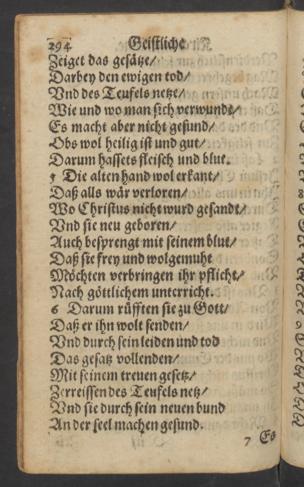 294 Geistliche
Zeiget das gesätze/
Darbey den ewigen tod/
Vnd des Teufels netze/
Wie vnd wo man sich verwunde/
Es macht aber nicht gesund/
Obs wol heilig ist und gut/
Darum hassets fleisch und blut.
5 Die alten hand wol erkant/
Daß alls wär verloren/
Wo Christus nicht wurd gesandt/
Vnd sie neu geboren/
Auch besprengt mit seinem blut/
Daß sie frey und wolgemuht
Möchten verbringen ihr pflicht/
Nach göttlichem unterricht.
6 Darum rüfften sie zu Gott/
Daß er ihn wolt senden/
Vnd durch sein leiden und tod
Das gesatz vollenden/
Mit seinem treuen gesetz/
Zerreissen des Teufels netz/
Vnd sie durch sein neuen bund
An der seel machen gesund.
7 Es